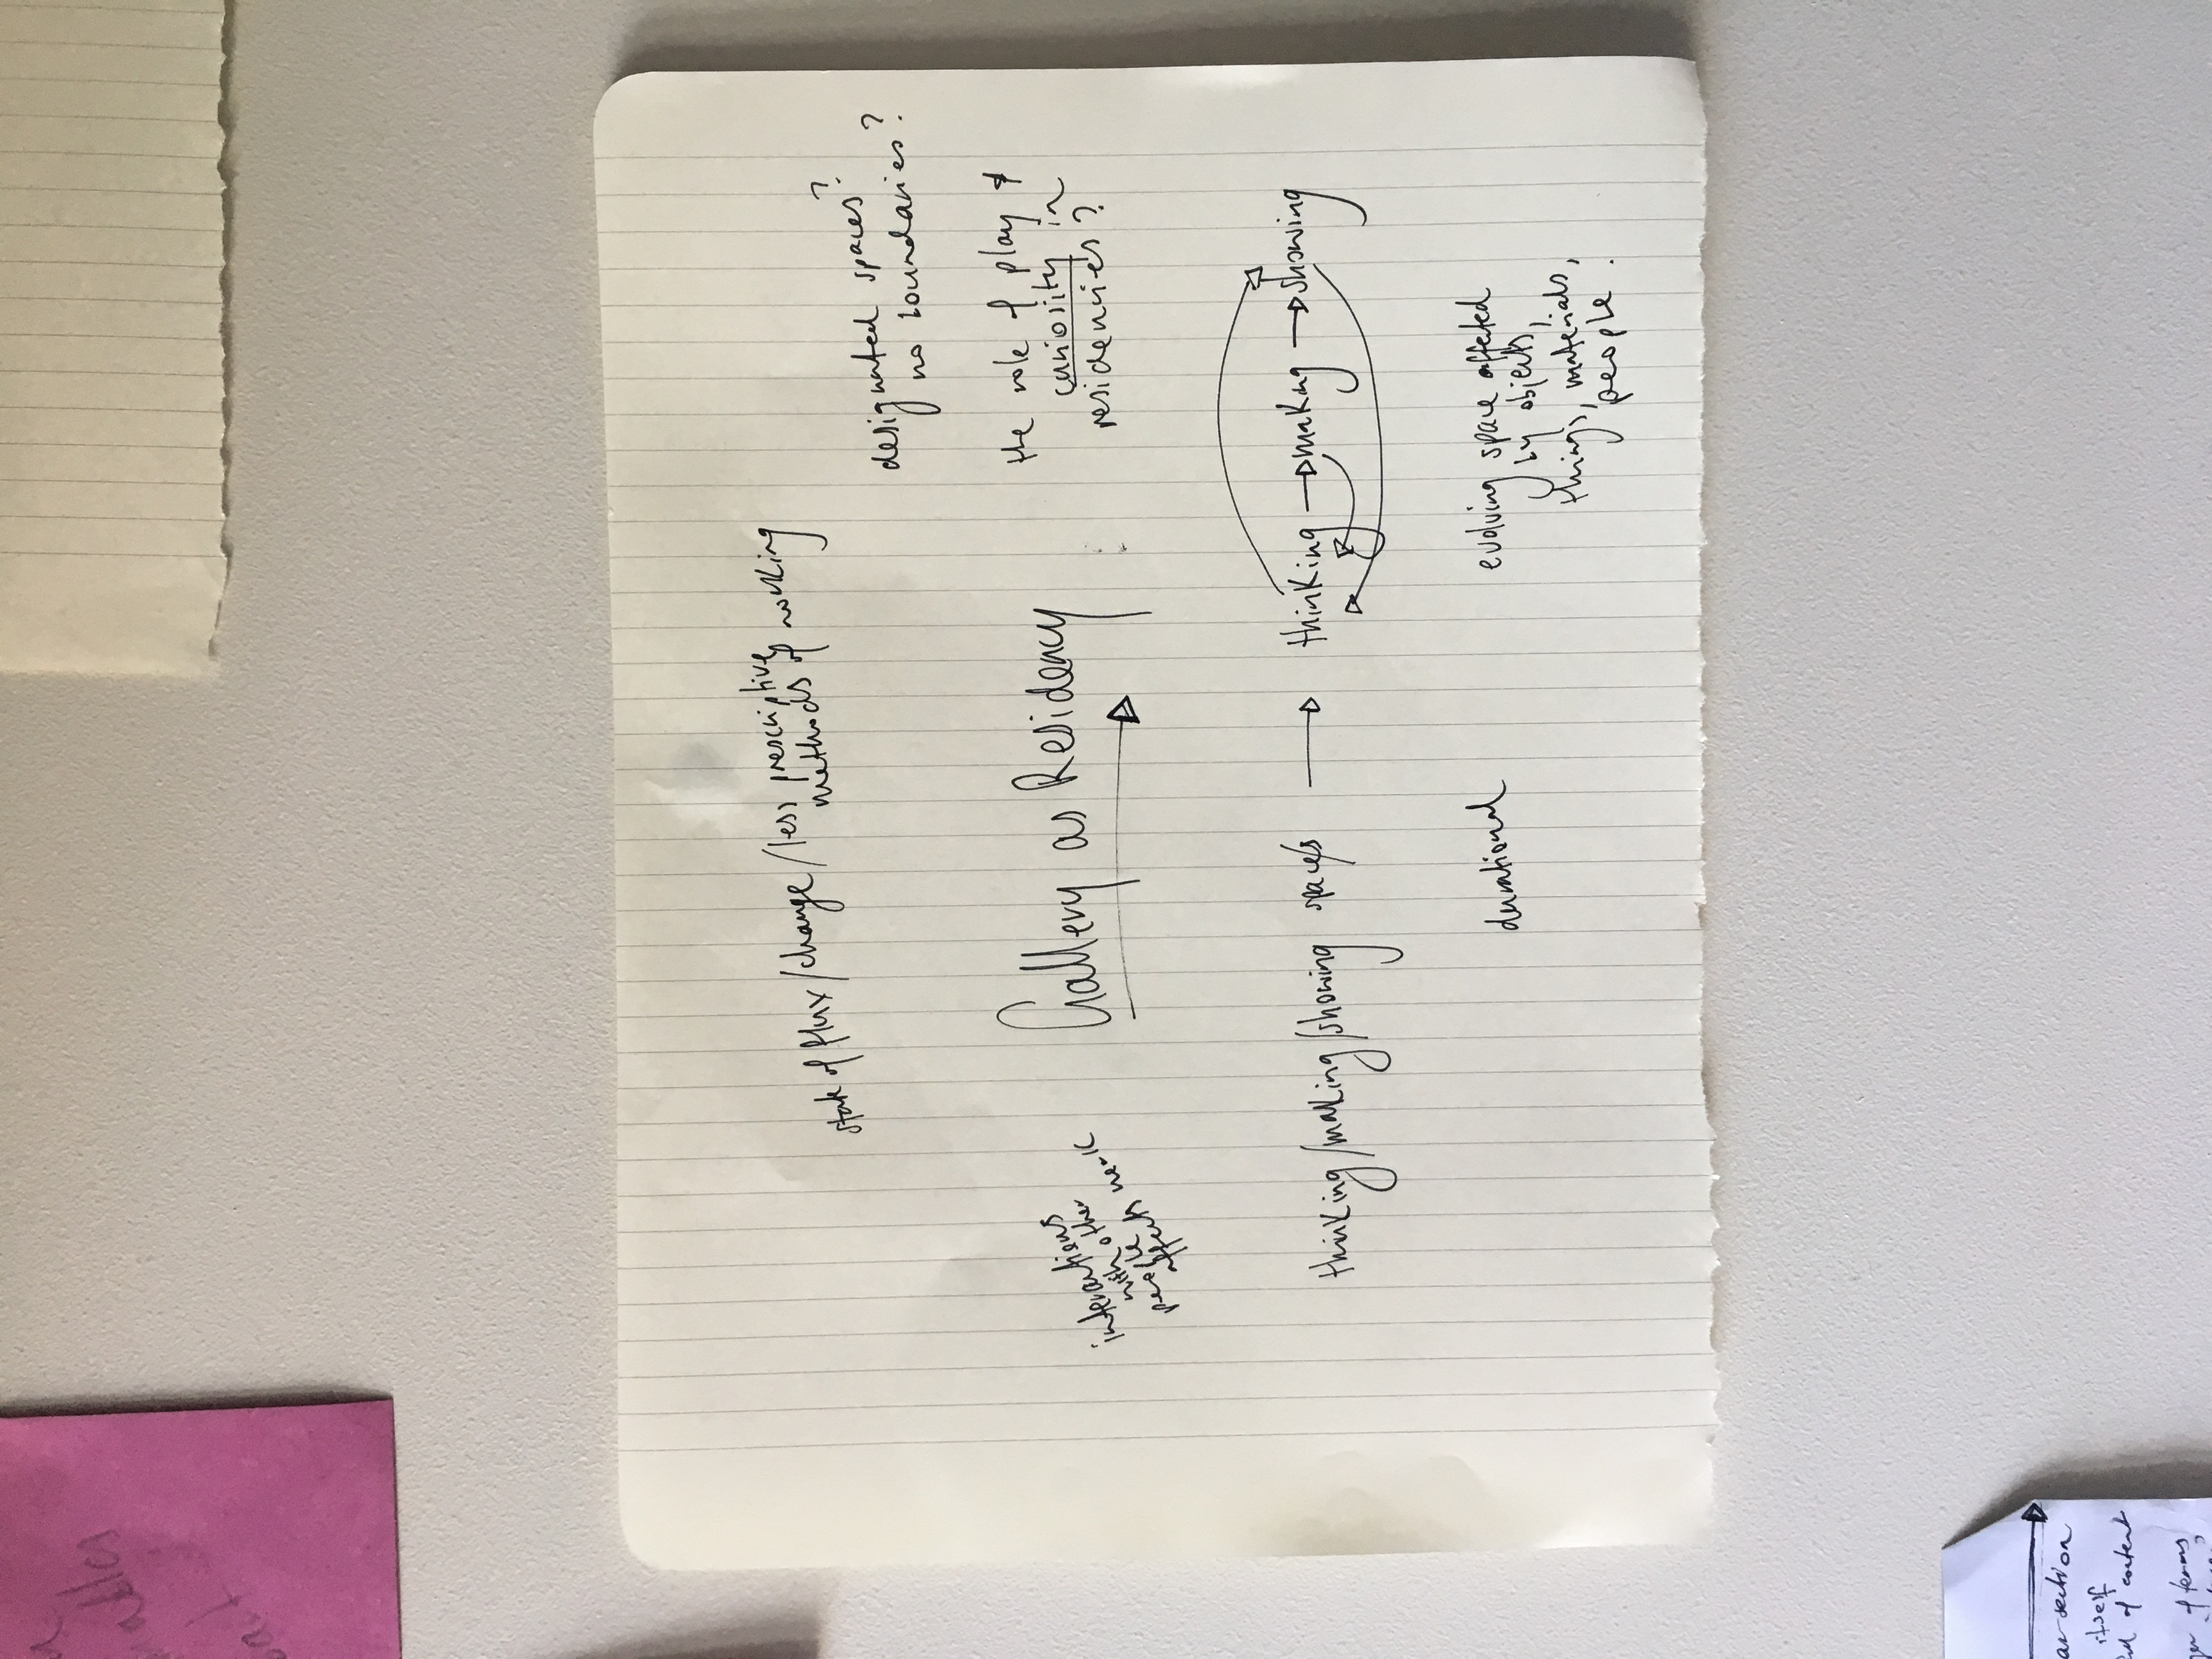 state of flux/change/less prescriptive
methods of working
designated spaces?
no boundaries?
interactions
with other
people
affects work
Gallery as Residency
the role of play &
curiosity in
residencies?
thinking/making/showing space/s
thinking making showing
durational
evolving space affected
by objects,
things, materials,
people.
itself
of content
of forms